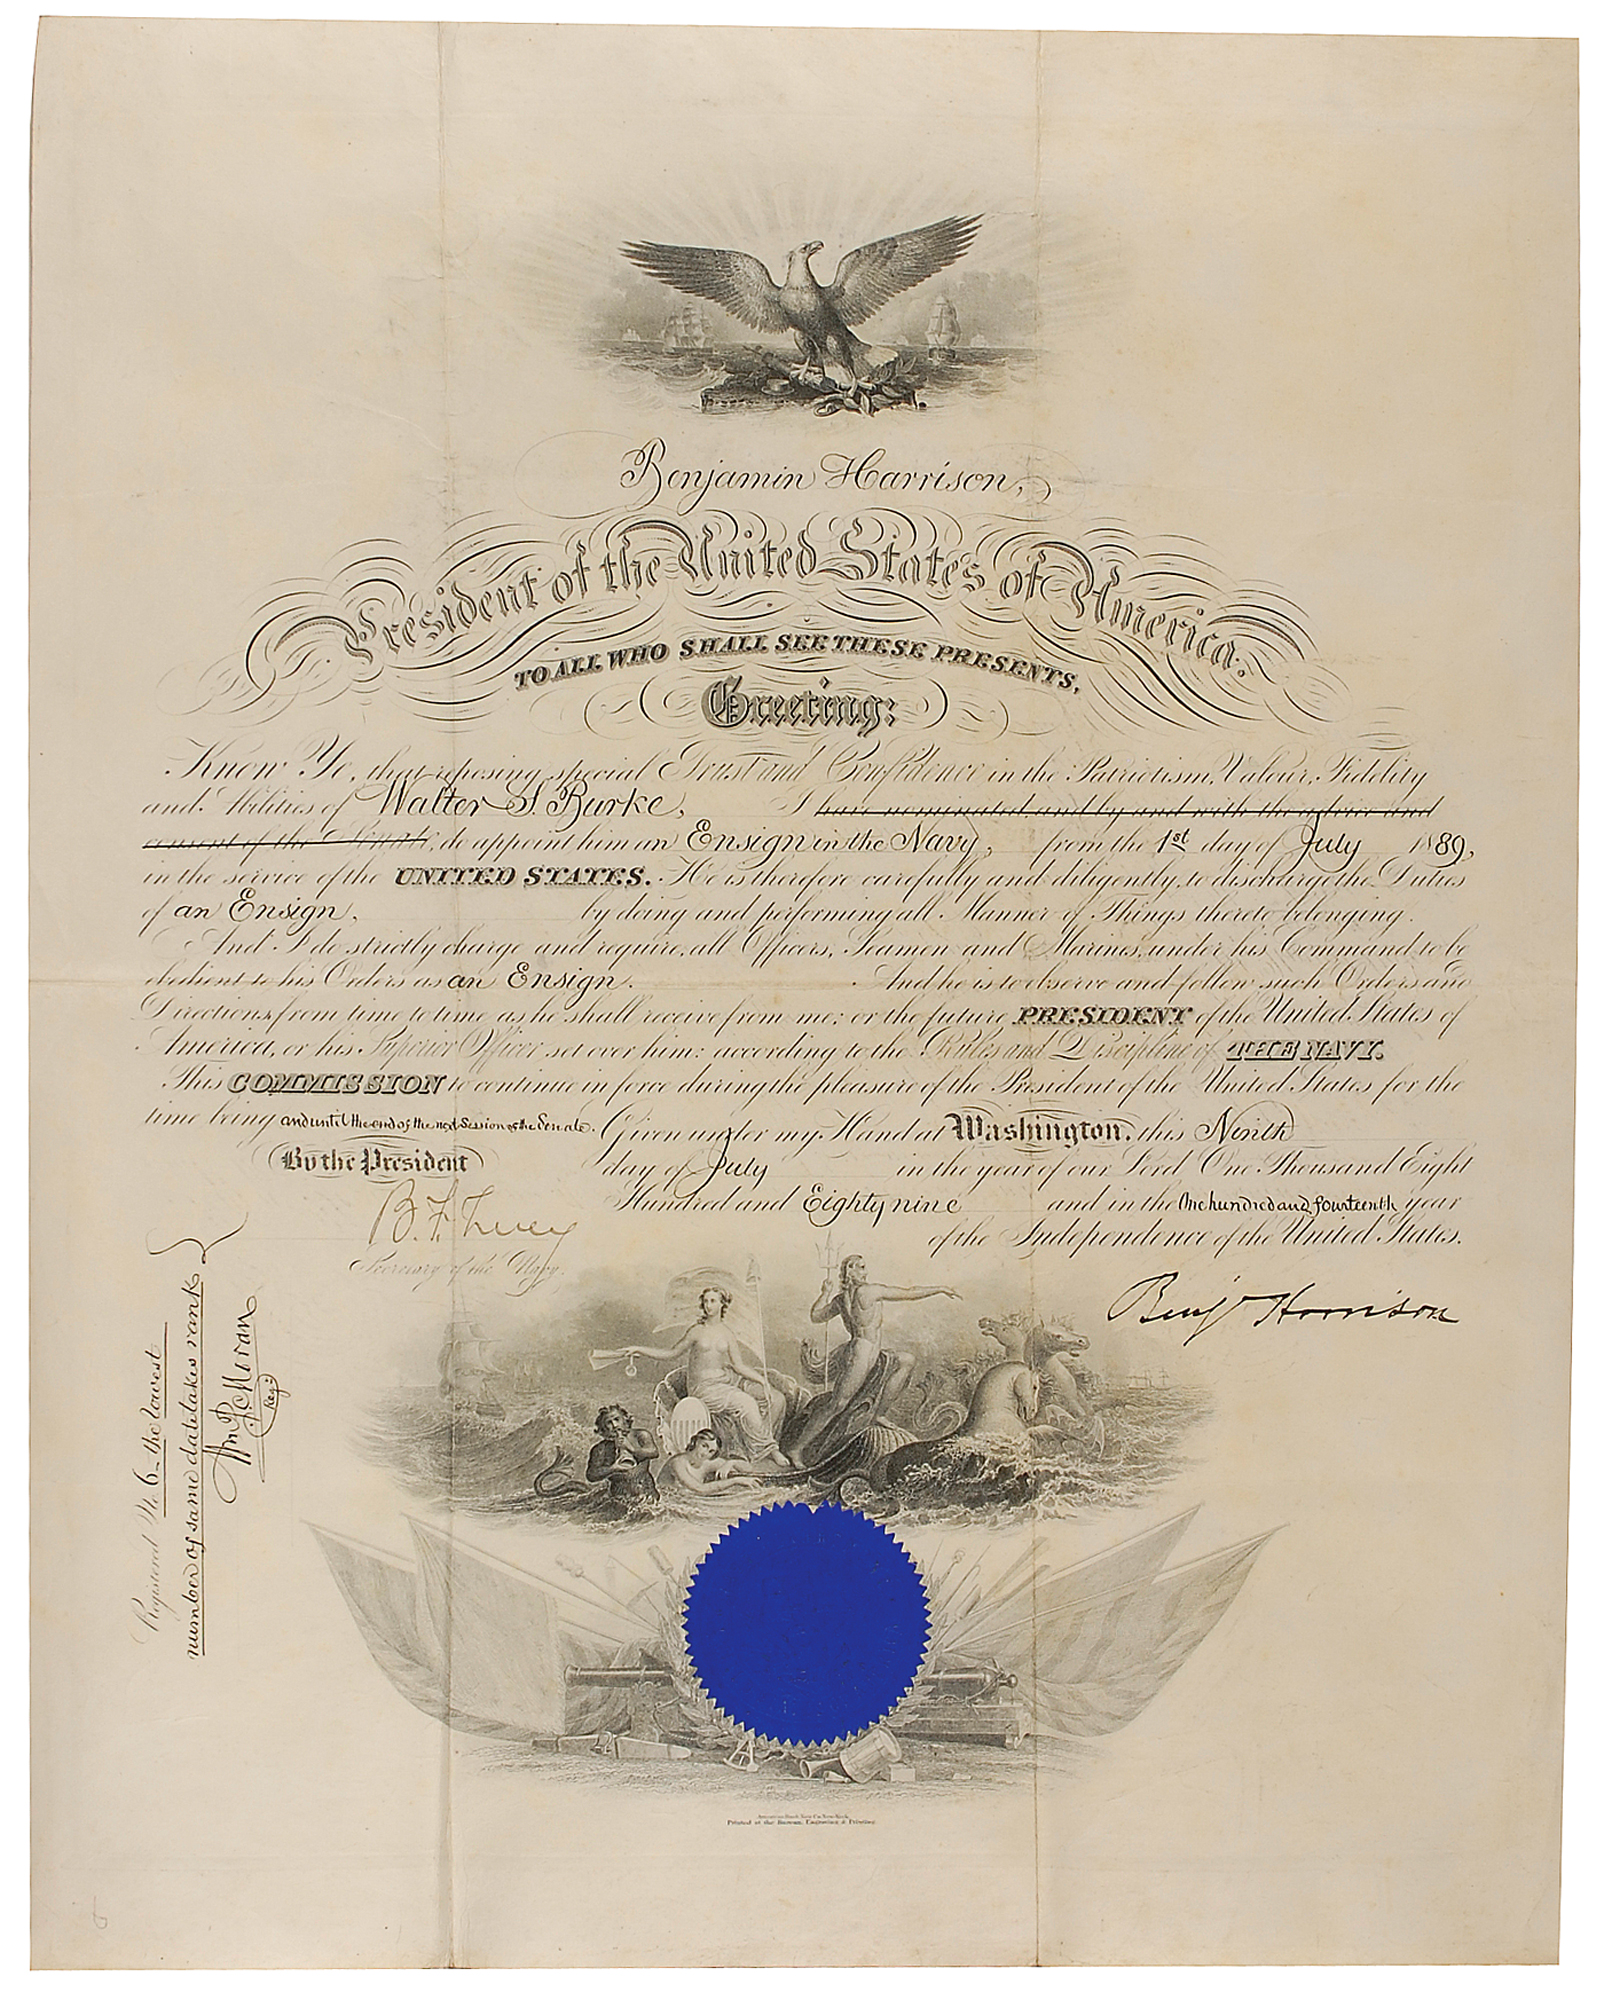 Benjamin Harrison,
President of the United States of America.
TO ALL WHO SHALL SEE THESE PRESENTS,
Greeting:
Know Ye, that reposing special Trust and Confidence in the Patriotism, Valour, Fidelity
and Abilities of Walter S. Burke, I have nominated and by and with the advice and
consent of the Senate, do appoint him an Ensign in the Navy, from the 1st day of July 1889,
in the service of the UNITED STATES. He is therefore carefully and diligently, to discharge the Duties
of an Ensign, by doing and performing all Manner of Things thereto belonging.
And I do strictly charge and require, all Officers, Seamen and Marines, under his Command to be
obedient to his Orders as an Ensign. And he is to observe and follow such Orders and
Directions, from time to time, as he shall receive from me; or the future PRESIDENT of the United States of
America, or his Superior Officer set over him; according to the Rules and Discipline of THE NAVY.
This COMMISSION to continue in force during the pleasure of the President of the United States for the
time being and until the end of the next Session of the Senate. Given under my Hand at Washington, this Ninth
By the President day of July in the year of our Lord One Thousand Eight
Hundred and Eighty nine and in the One hundred and fourteenth year
of the Independence of the United States.
B. F. Tracy
Secretary of the Navy.
Benj Harrison
Registered No 6 - the lowest
number of same date takes rank
Reg:
Printed at the Bureau, Engraving & Printing